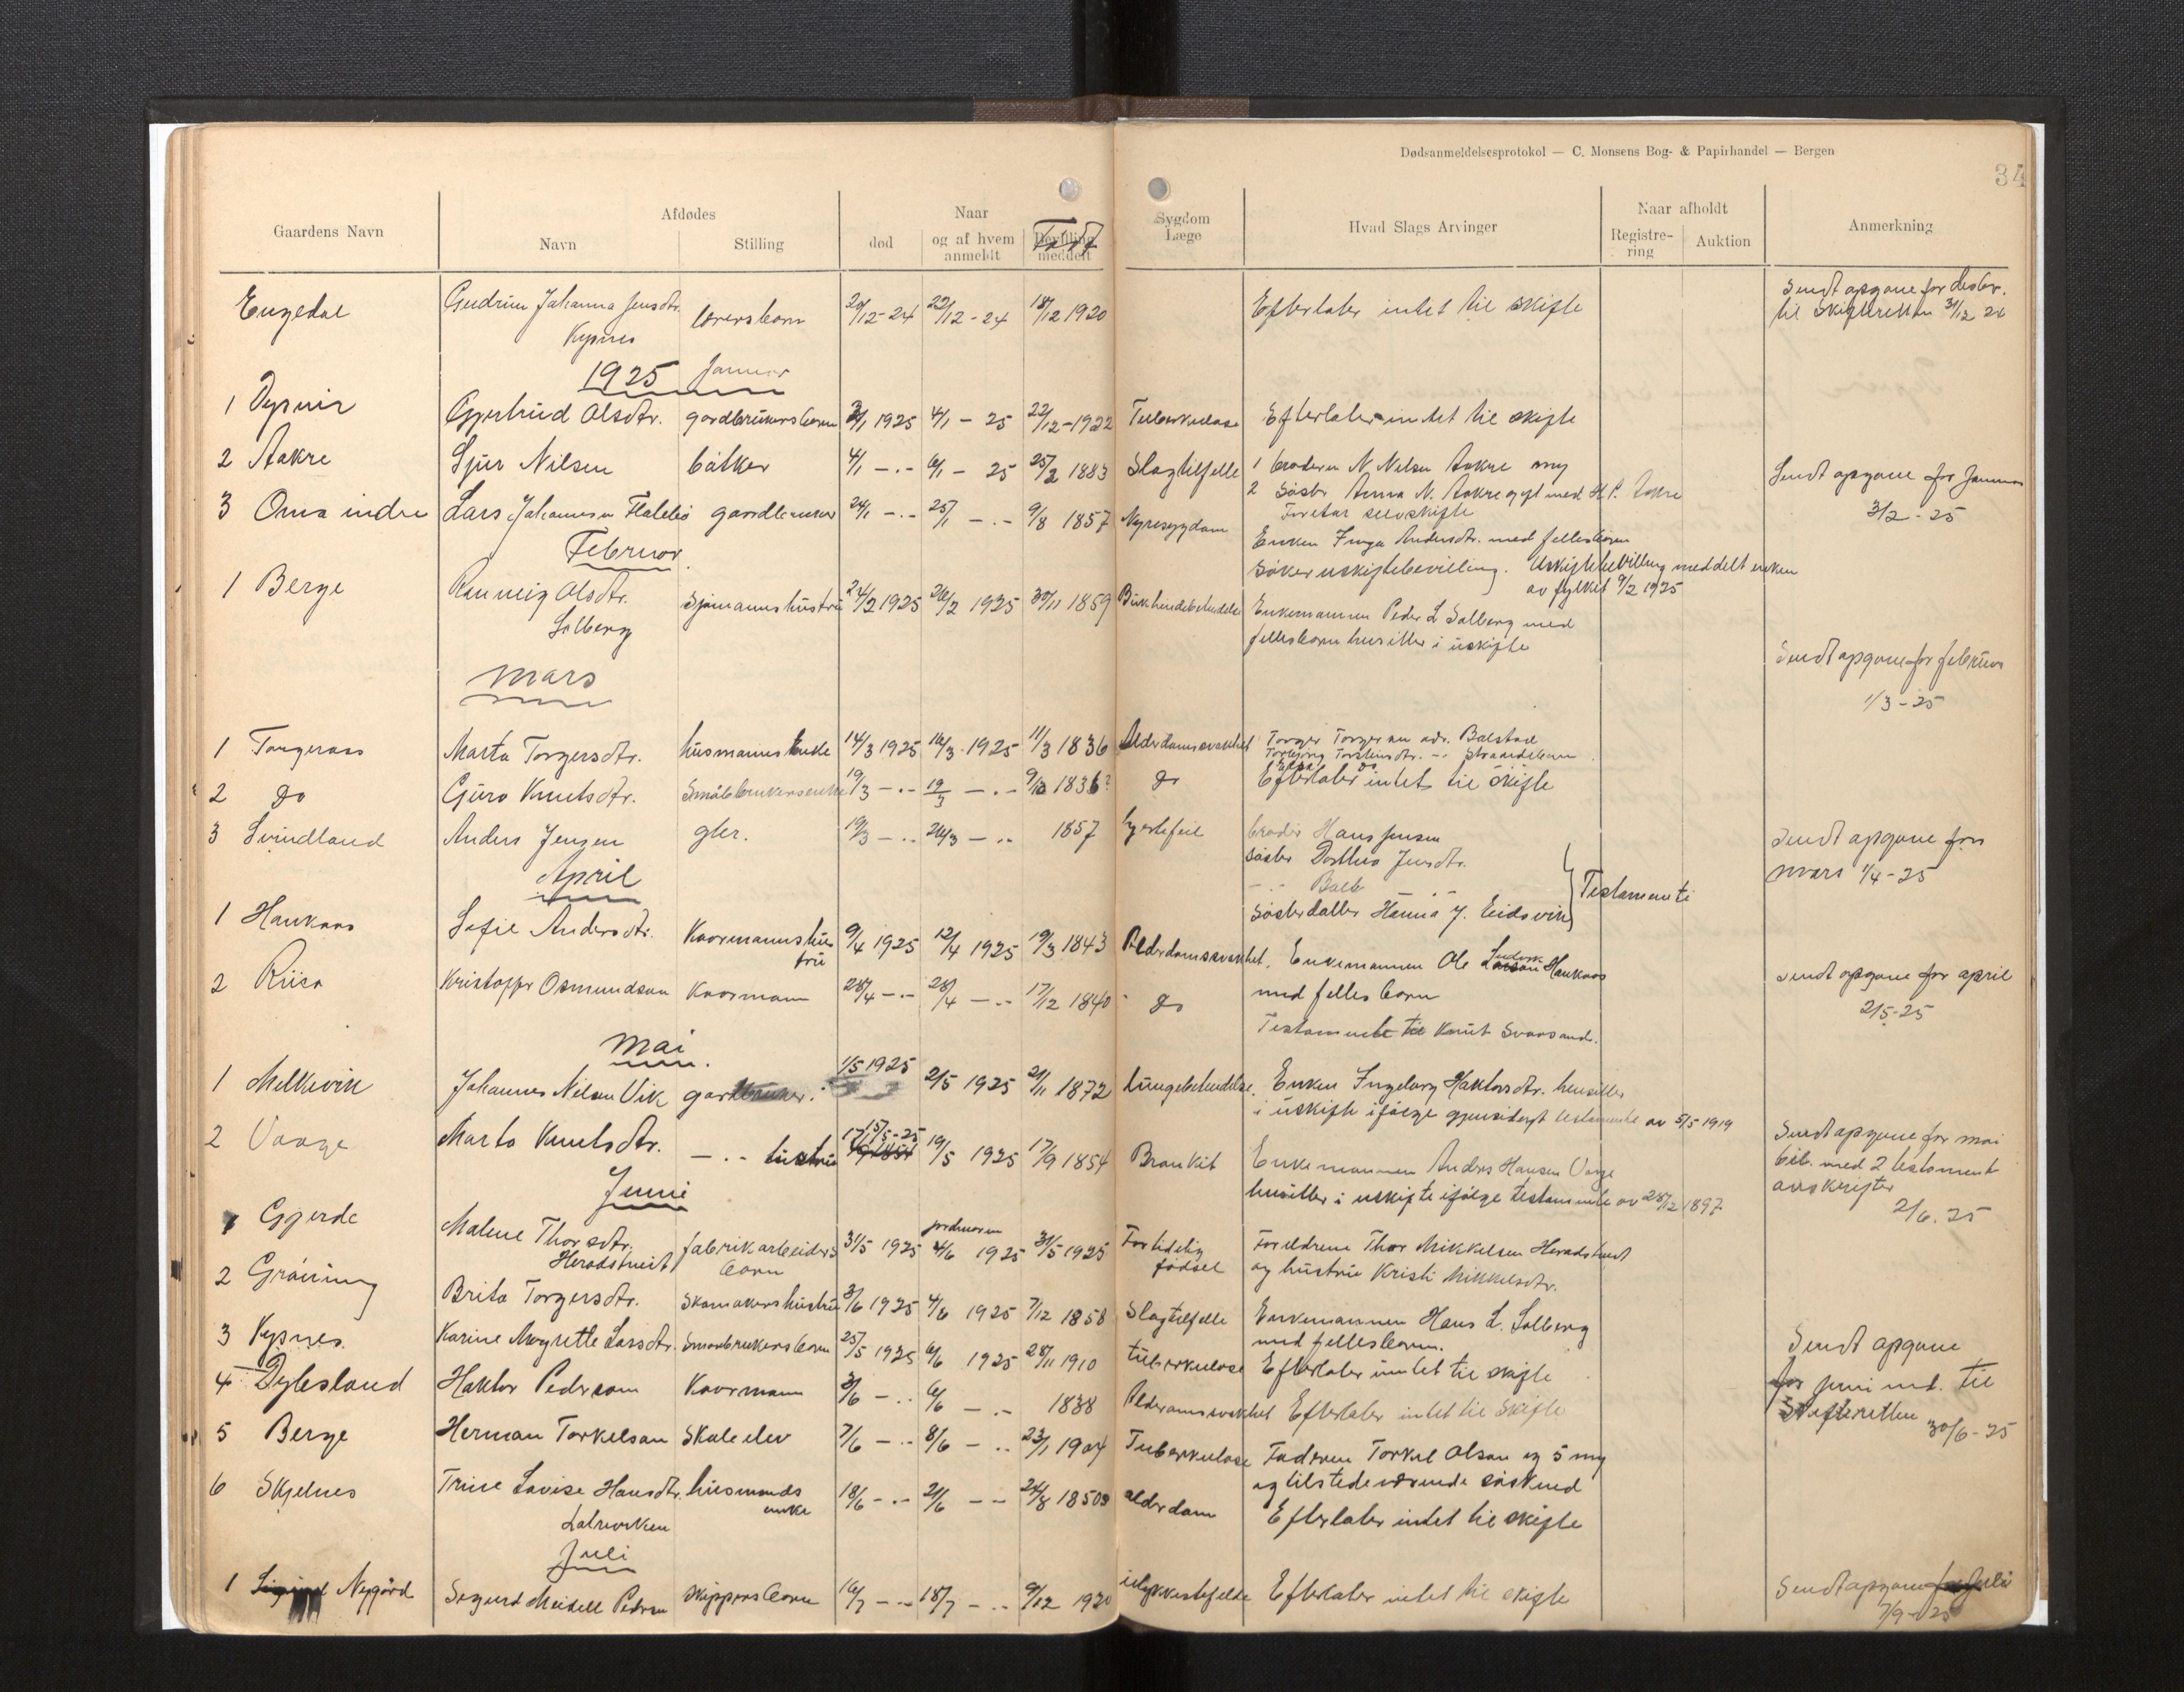 Dødsanmeldelsesprotokol — C. Monsens Bog- & Papirhandel — Bergen
34
Gaardens Navn
Afdødes
Navn
Stilling
Naar
død
og af hvem anmeldt
Bevilling meddelt
Født
Sygdom
Læge
Hvad Slags Arvinger
Naar afholdt
Registre-
ring
Auktion
Anmerkning
Engedal Gudrun Johanna Jensdtr. lærersbarn 20/12-24 22/12-24 18/12 1920 Efterlater intet til skifte Sendt opgave for desbr.
Vypnes til skifteretten 31/12 24
1925 Januar
1 Gjertrud Olsdtr. gardbrukersbarn 3/1 1925 4/1 - 25 22/12-1922 Tuberkulose Efterlater intet til skifte
2 Aakre Sjur Nilsen båtker 4/1 -.- 6/1 - 25 25/2 1883 Slagtilfelle 1 broderen N Nilsen Aakre my
2 Søster Anna N. Aakre gyt med H.P. Aakre
Foretar selvskifte
Sendt opgave for Januar
3/2-25
3 Oma indre Lars Johannesen gardbruker 24/1 -.- 25/1 -.- 9/8 1857 Nyresygdom Enken Inga Andersdtr. med fellesbarn
søker uskiftebevilling. Uskiftebevilling meddelt enken
av fylket 9/2 1925
Februar
1 Berge Ranneig Olsdtr. sjømannshustru 24/2 1925 26/2 1925 30/11 1859 Enkemannen Peder L Solberg med
Solberg fellesbarn hensitter i uskifte
Sendt opgave for februar
1/3-25
mars
1 Torgeraas Marta Torgersdtr. husmanns Enke 14/3 1925 16/3 1925 11/3 1836 Alderdomssvakhet Torger Torgersen adr. Balstad
Torbjørg Torsteinsdtr. -.- Strandebarm
2 do Guro Knutsdtr. Småbrukersenke 19/3 -.- 19/3 -.- 1836? do Efterlater intet til skifte
3 Svindland Anders Jensen gbr. 19/3 -.- 24/3 -.- 1857 hjertefeil broder Hans Jensen
søster Dorthea Jensdtr.
søsterdatter Hanna J. Eidsvik
Testamente
Sendt opgave for
mars 1/4-25
April
1 Haukaas Sofie Andersdtr. Kaarmannshus
tru 9/4 1925 12/4 1925 19/3 1843 Alderdomssvakhet. Enkemannen Ole Larsen Haukaas
med felles barn
2 Riisa Kristoffer Osmundsen Kaarmann 28/4 -.- 28/4 -.- 17/12 1840 do
Testamente til Knut Svaasand.
sendt opgave for april
2/5-25
mai
1 Melkevik Johannes Nilsen Vik gardbruker 1/5 1925 2/5 1925 21/11 1872 Lungebetendelse. Enken Ingeborg Haktorsdtr. hensitter
i uskifte ifølge gjensidigt testamente av 5/5 1919
2 Vaage Marta Knutsdtr. -.- hustru 17/5-25 19/5 1925 17/9 1854 Bronkit Enkemannen Anders Hansen Vaage
hensitter i uskifte ifølge testamente av 28/12 1897
Sendt opgave for mai
bil. med 2 testament
avskrifter
2/6.25
Juni
1 Gjerde Malene Thorsdtr. fabrikarbeiders 31/5 1925 jordmoren 4/6 1925 31/5 1925 Fortidelig Foreldrene Thor Mikkelsen Heradstveit
Heradstveit barn fødsel og hustru Kristi Mikkelsdtr.
2 Grøning Brita Torgersdtr. Skomakershustru 3/6 1925 4/6 1925 7/12 1858 Slagtilfelle Enkemannen Hans L. Solberg
med fellesbarn.
3 Vypnes Karine Margrette Larsdtr. Småbrukersbarn 25/5 1925 6/6 1925 28/11 1910 tuberkulose Efterlater intet til skifte
Sendt opgave
4 Dylesland Haktor Pederson Kaarmann 3/6 -.- 6/6 -.- 1838 Alderdomssvakhet Efterlater intet til skifte
for juni md. til
Skifteretten
30/6-25
5 Berge Herman Torkelson Skoleelev 7/6 -.- 8/6 -.- 23/1 1904 Tuberkulose Faderen Torkel Olson og 5 my
og tilstedeværende søskend
6 Skjelnes Trine Lovise Hansdtr. husmands
enke 18/6 -.- 21/6 -- 24/8 1850 alderdom Efterlater intet til skifte
Juli
1 Nygård Sigurd Meidell Pedersen Skippersbarn 16/7 -.- 18/7 -.- 9/12 1920 ulykkestilfelde Efterlater intet til skifte Sendt opgave for Juli
7/9-25